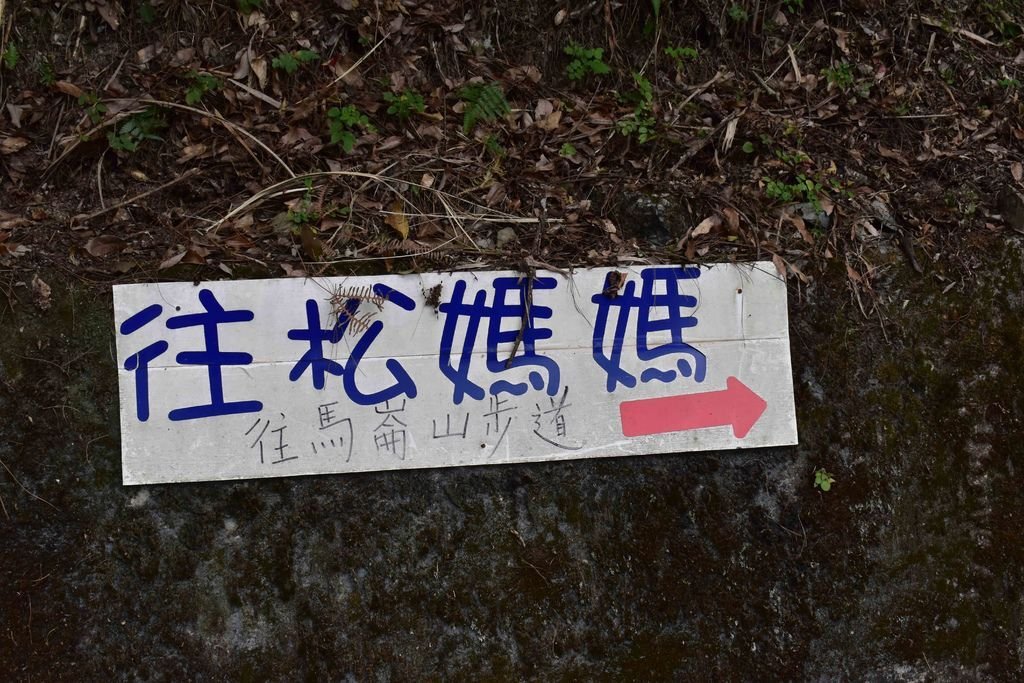 往松媽媽
往馬崙山步道